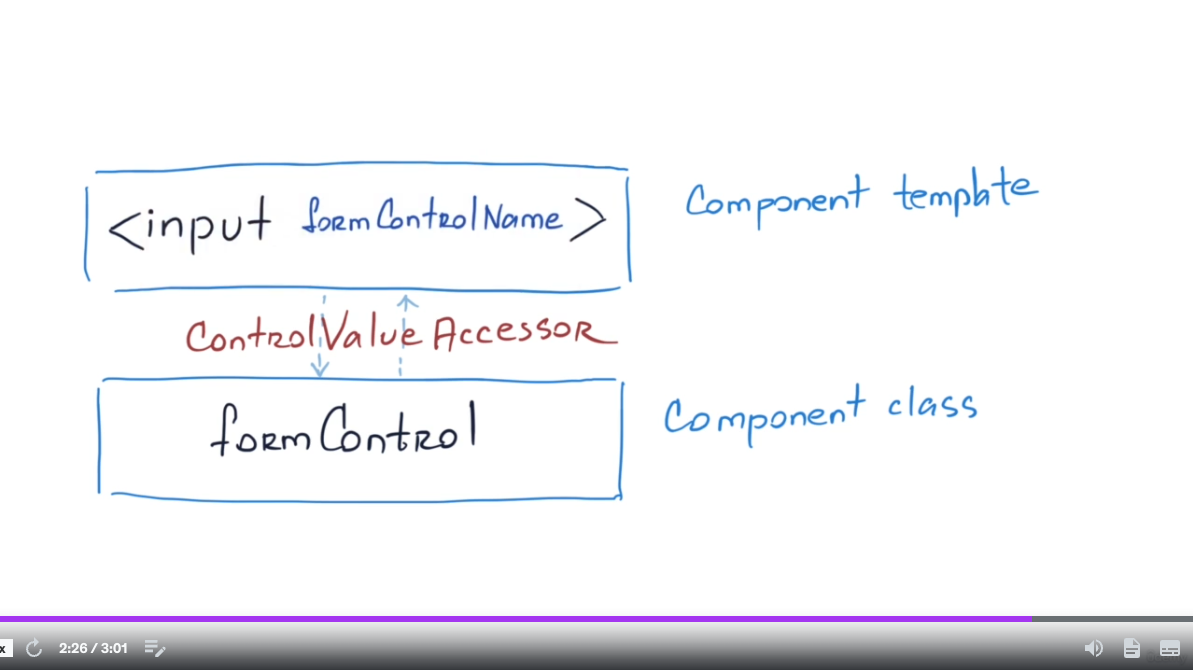 <input formControlName>
Component template
ControlValueAccessor
formControl
Component class
x
2:26 / 3:01